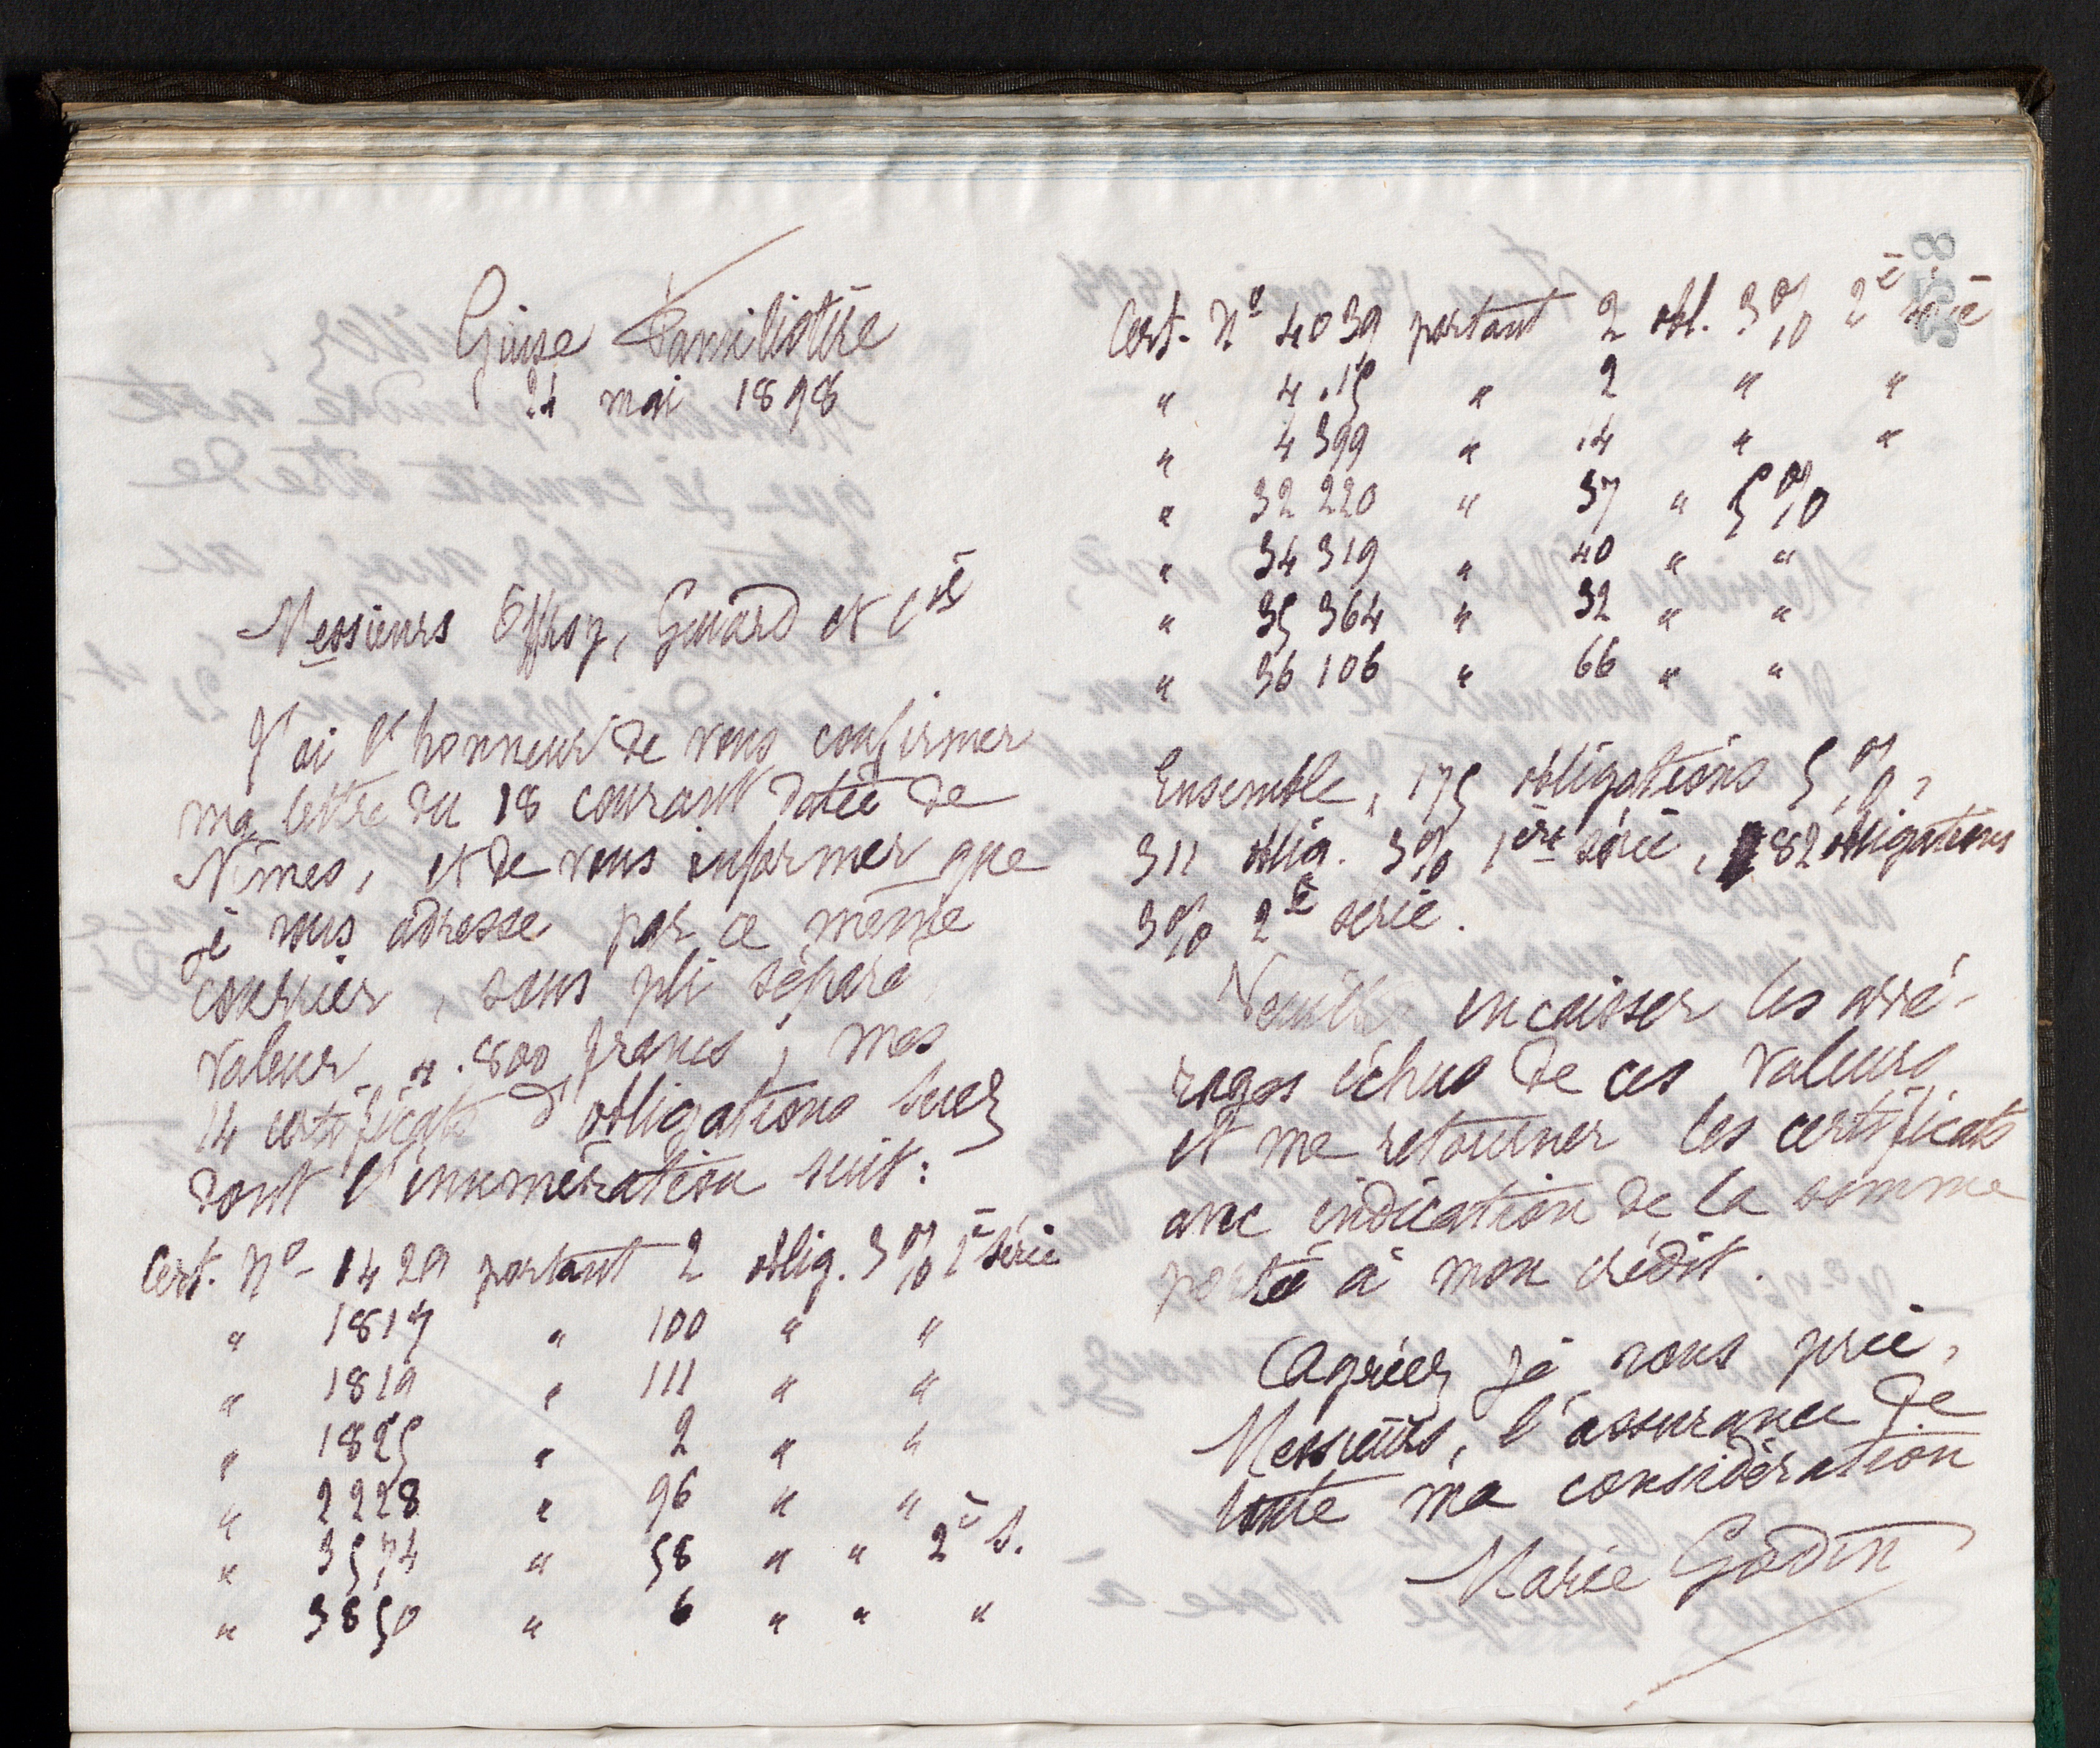 Guise Familistère
24 mai 1898
Messieurs Offroy, Guiard et Cie
J'ai l'honneur de vous confirmer
ma lettre du 18 courant datée de
Nîmes, et de vous informer que
je vous adresse par ce même
courrier, sous pli séparé
valeur 800 francs, mes
14 certificats d'obligations Suez
dont l'énumération suit:
Cert. No 1429 portant 2 oblig. 3% 1e série
" 1817 " 100 " "
" 1819 " 111 " "
" 1825 " 2 " "
" 2228 " 96 " "
" 3574 " 58 " " 2e s.
" 3850 " 6 " " "
Cert. No 4039 portant 2 obl. 3% 2e série
" 4.15 " 2 " "
" 4399 " 14 " "
" 32220 " 37 " 5%
" 34319 " 40 " "
" 35364 " 32 " "
" 36106 " 66 " "
Ensemble, 175 obligations 5%,
311 oblig. 3% 1ère série, 82 obligations
3% 2e série.
Veuillez encaisser les arré-
rages échus de ces valeurs
et me retourner les certificats
avec indication de la somme
portée à mon crédit.
Agréez je vous prie,
Messieurs, l'assurance de
toute ma considération
Marie Godin